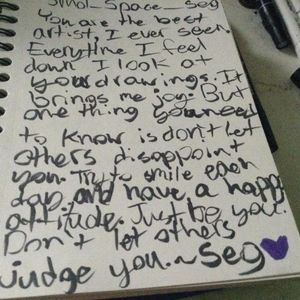 Smol_Space_Seg
You are the best
artist, I ever seen.
Everytime I feel
down I look at
your drawings. It
brings me joy. But
one thing you need
to know is don't let
others disappoint
you. Try to smile each
day, and have a happy
attitude. Just be you.
Don't let others
judge you. ~Seg